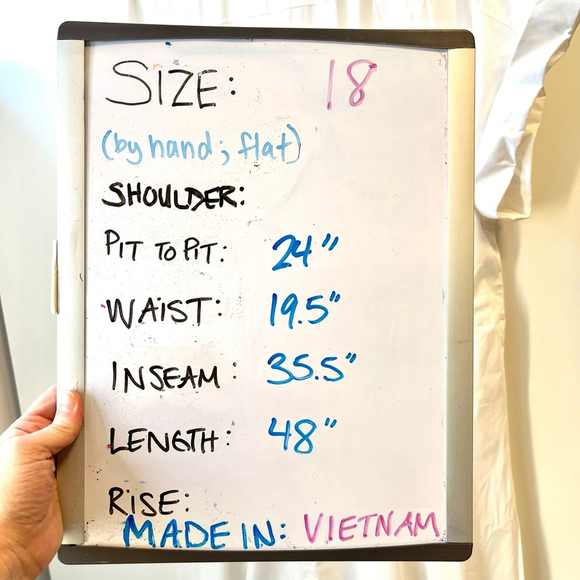 SIZE: 18
(by hand; flat)
SHOULDER:
PIT TO PIT: 24"
WAIST: 19.5"
INSEAM: 35.5"
LENGTH: 48"
RISE:
MADE IN: VIETNAM